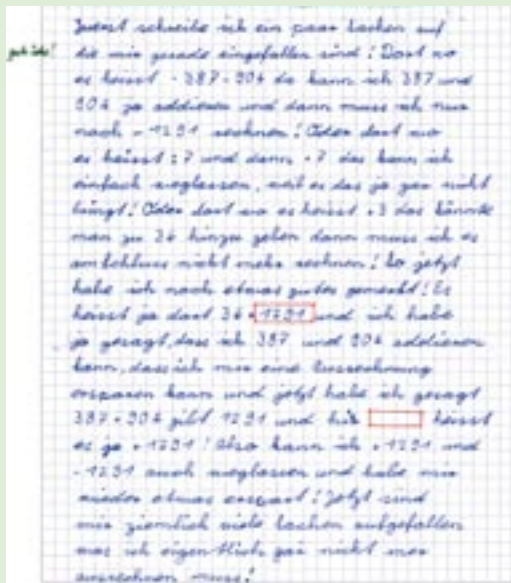 Zuerst schreibe ich ein paar Sachen auf
gute Idee!
die mir gerade eingefallen sind! Dort wo
es heisst - 387 - 904 da kann ich 387 und
904 ja addieren und dann muss ich nur
noch - 1291 rechnen! Oder dort wo
es heisst : 7 und dann · 7 das kann ich
einfach weglassen, weil es das ja gar nicht
bringt! Oder dort wo es heisst + 3 das könnte
man zu 36 hinzu geben dann muss ich es
am Schluss nicht mehr rechnen! So jetzt
habe ich noch etwas gutes gemerkt! Es
heisst ja dort 36 + 1291 und ich habe
ja gesagt, dass ich 387 und 904 addieren
kann, dass ich mir eine Ausrechnung
ersparen kann und jetzt habe ich gesagt
387 + 904 gibt 1291 und heisst
es ja + 1291! Also kann ich + 1291 und
- 1291 auch weglassen und habe mir
wieder etwas erspart! Jetzt sind
mir ziemlich viele Sachen aufgefallen
was ich eigentlich gar nicht
ausrechnen muss!